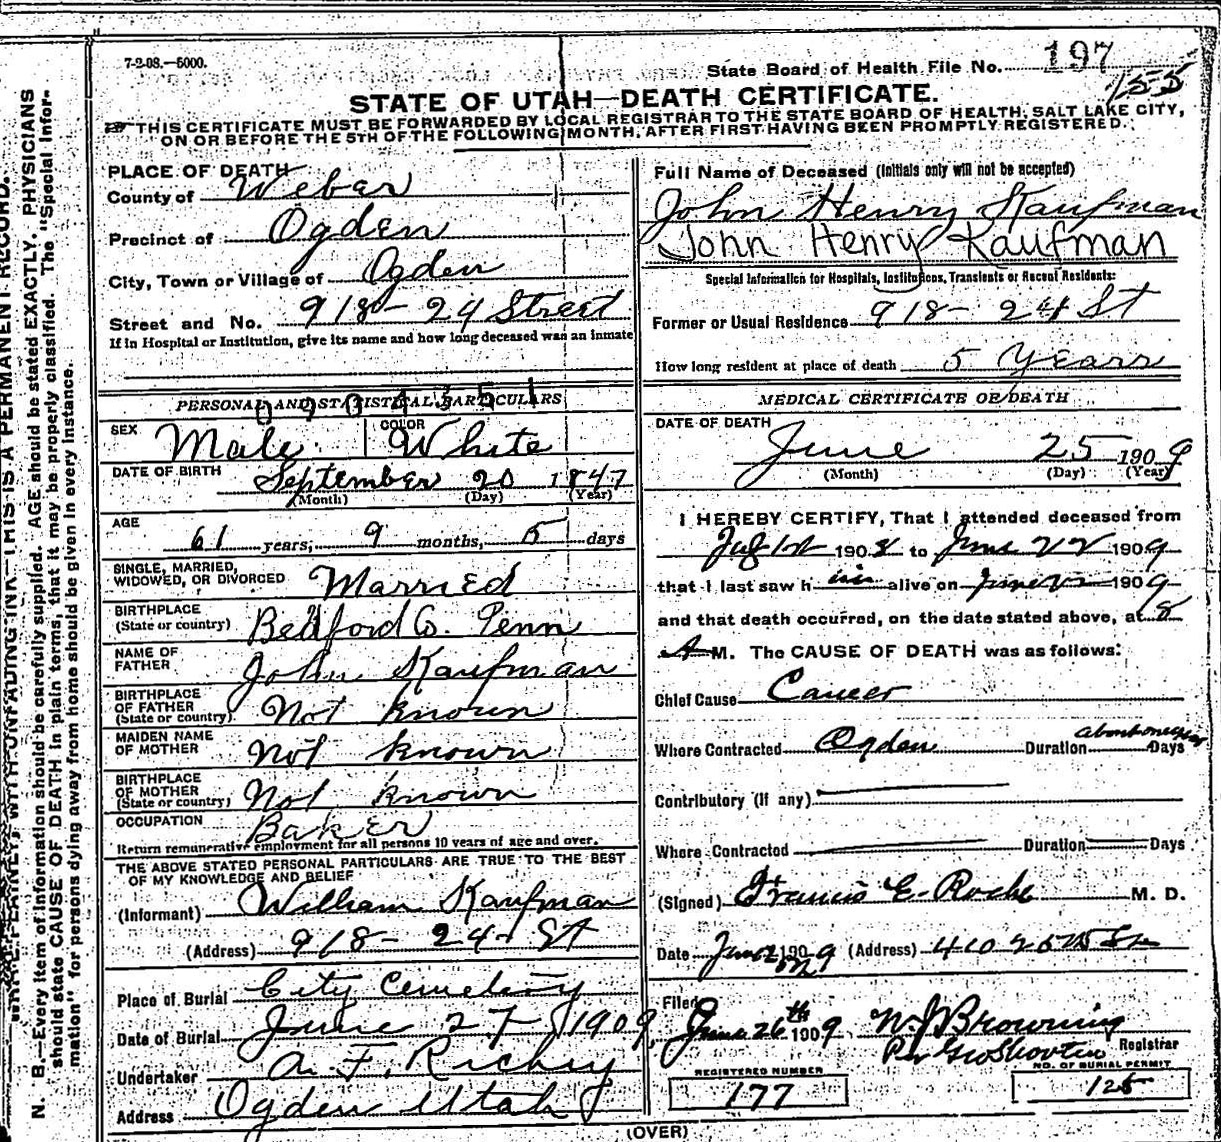 7-2-08.—5000.
State Board of Health File No. 197
155
STATE OF UTAH—DEATH CERTIFICATE.
THIS CERTIFICATE MUST BE FORWARDED BY LOCAL REGISTRAR TO THE STATE BOARD OF HEALTH, SALT LAKE CITY,
ON OR BEFORE THE 5TH OF THE FOLLOWING MONTH, AFTER FIRST HAVING BEEN PROMPTLY REGISTERED.
PLACE OF DEATH
County of Weber
Precinct of Ogden
City, Town or Village of Ogden
Street and No. 918 - 24 Street
If in Hospital or Institution, give its name and how long deceased was an inmate
PERSONAL AND STATISTICAL PARTICULARS
0904351
SEX Male COLOR White
DATE OF BIRTH September 20 1847
(Month) (Day) (Year)
AGE 61 years, 9 months, 5 days
SINGLE, MARRIED,
WIDOWED, OR DIVORCED Married
BIRTHPLACE
(State or country) Bedford Co. Penn
NAME OF
FATHER John Kaufman
BIRTHPLACE
OF FATHER
(State or country) Not known
MAIDEN NAME
OF MOTHER Not known
BIRTHPLACE
OF MOTHER
(State or country) Not known
OCCUPATION Baker
Return remunerative employment for all persons 10 years of age and over.
THE ABOVE STATED PERSONAL PARTICULARS ARE TRUE TO THE BEST
OF MY KNOWLEDGE AND BELIEF
(Informant) William Kaufman
(Address) 918 - 24 - St
Place of Burial City Cemetery
Date of Burial June 27 1909
Undertaker A. F. Richey
Address Ogden Utah
Full Name of Deceased (Initials only will not be accepted)
John Henry Kaufman
John Henry Kaufman
Special Information for Hospitals, Institutions, Transients or Recent Residents:
Former or Usual Residence 918 - 24 St
How long resident at place of death 5 Years
MEDICAL CERTIFICATE OF DEATH
DATE OF DEATH
June 25 1909
(Month) (Day) (Year)
I HEREBY CERTIFY, That I attended deceased from
1st 1908 to June 22 1909
that I last saw him alive on June 1909
and that death occurred, on the date stated above, at 8
A M. The CAUSE OF DEATH was as follows:
Chief Cause Cancer
Where Contracted Ogden Duration about one year Days
Contributory (if any)
Where Contracted Duration Days
(Signed) Francis E. Roche M. D.
Date June 1909 (Address) 410 25th St
Filed
June 26th 1909 W J Browning
Registrar
REGISTERED NUMBER
177
NO. OF BURIAL PERMIT
125
(OVER)
N. B.—Every item of information should be carefully supplied. AGE should be stated EXACTLY. PHYSICIANS
should state CAUSE OF DEATH in plain terms, that it may be properly classified. The "Special Infor-
mation" for persons dying away from home should be given in every instance.
WRITE PLAINLY, WITH UNFADING INK—THIS IS A PERMANENT RECORD.